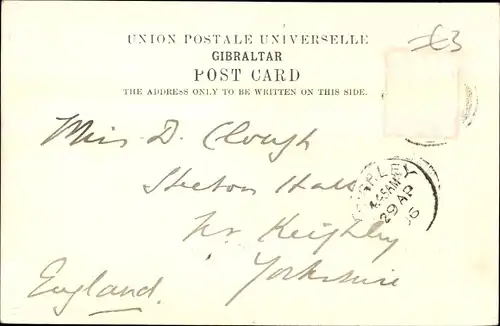 £3
UNION POSTALE UNIVERSELLE
GIBRALTAR
POST CARD
THE ADDRESS ONLY TO BE WRITTEN ON THIS SIDE.
Miss D. Clough
Steeton Hall
Nr Keighley
Yorkshire
England.
29 AP